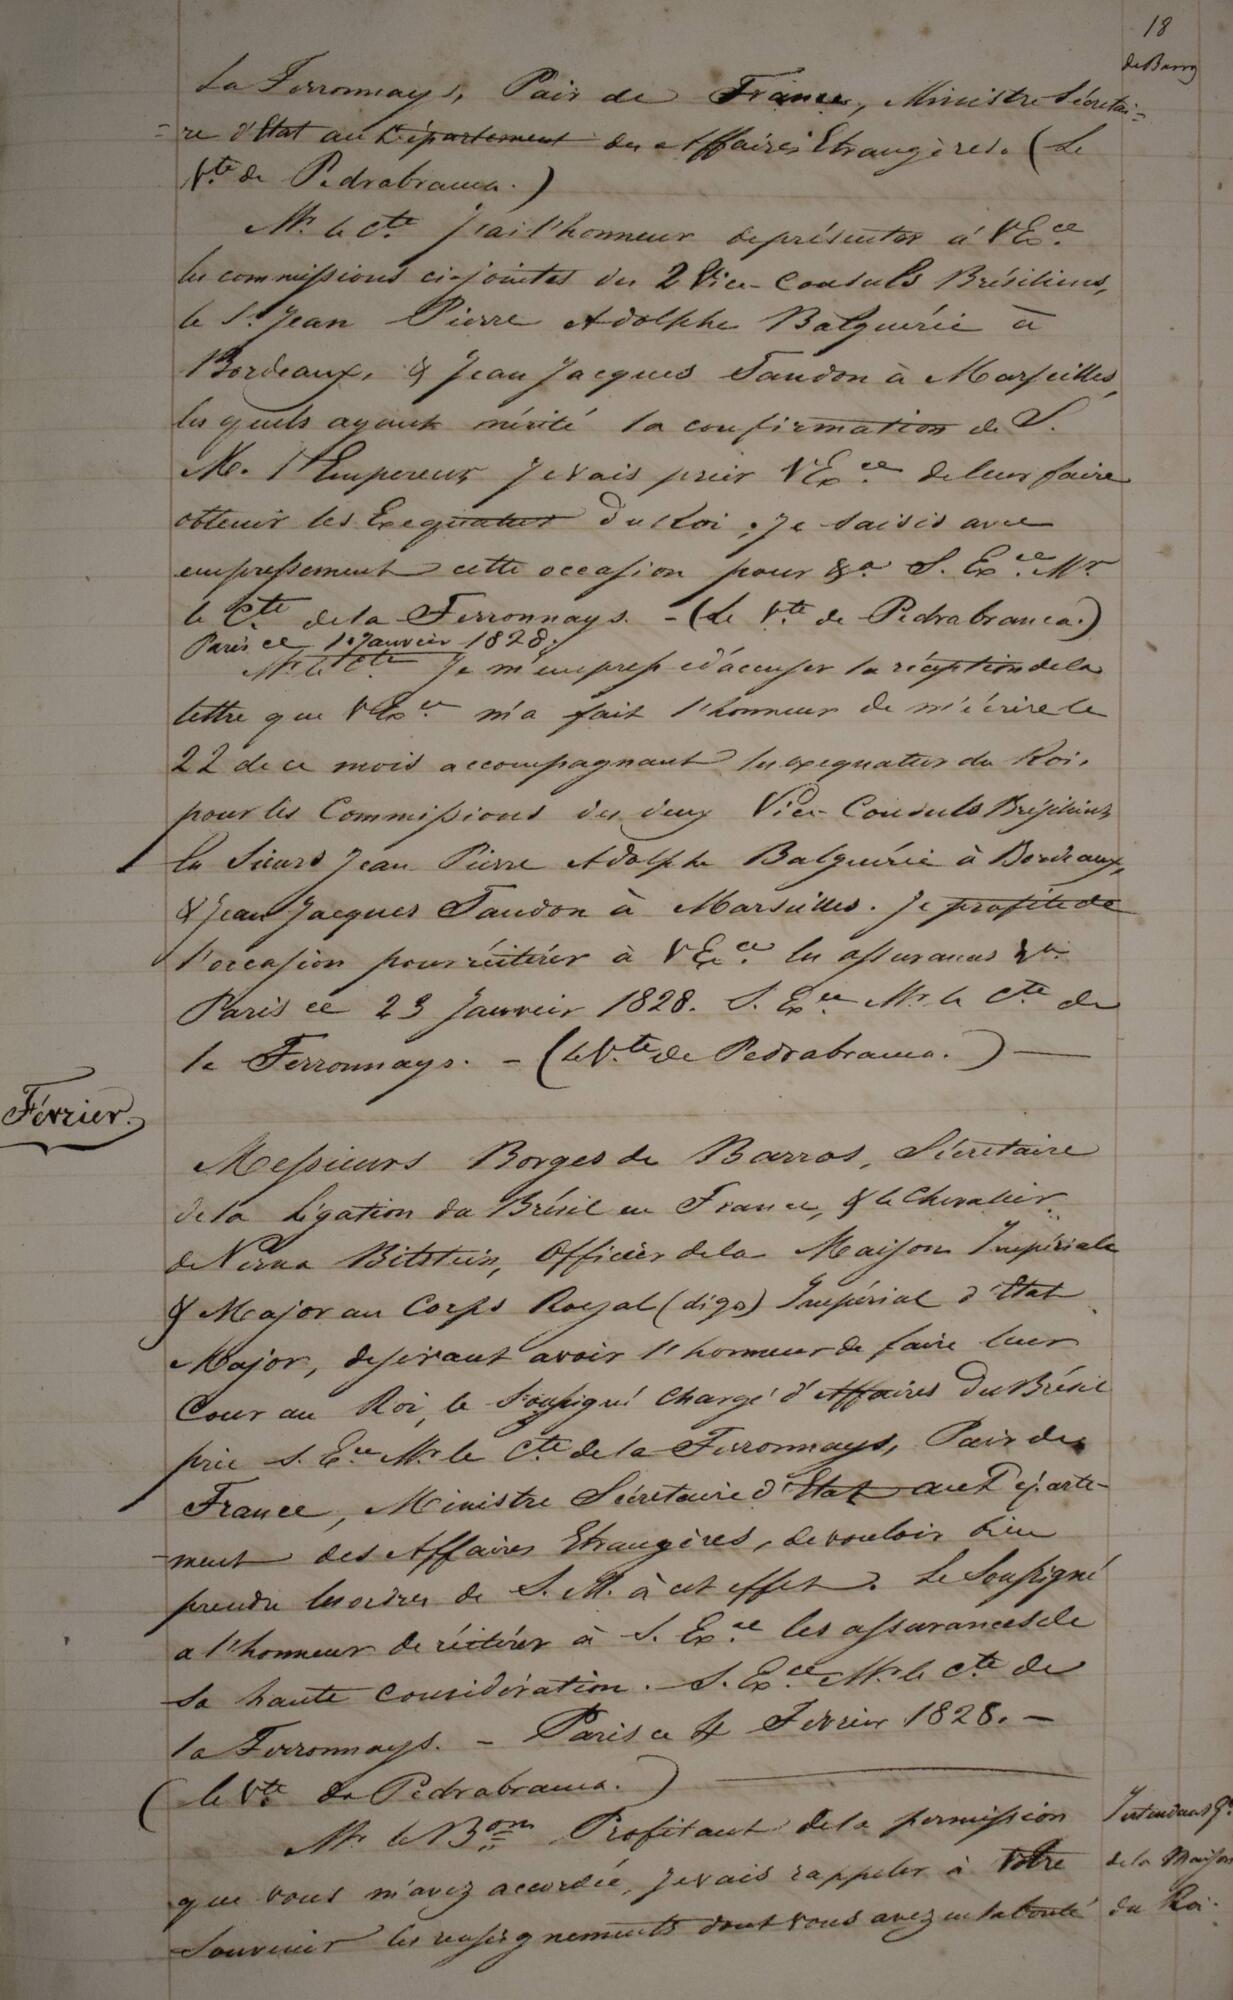 18
de Barros
La Ferronnays, Pair de France, Ministre Sécretai=
=re d'Etat au Département des Affaires Etrangères. (Le
Vte de Pedrabranca.)
Mr. le Cte J'ai l'honneur de présenter à V Exce
les commissions ci-jointes des 2 Vice-Consuls Brésiliens,
le Sr. Jean Pierre Adolphe Balguérie à
Bordeaux, & Jean Jacques Tandon à Marseilles,
les quels ayant mérité la confirmation de S.
M. l'Empereur, Je vais prier V Exce de leur faire
obtenir les Exequatur du Roi. Je saisis avec
empressement cette occasion pour &a S. Exce Mr.
le Cte de la Ferronnays. - (Le Vte de Pedrabranca.)
Paris ce 1. Janvier 1828.
Mr. le Cte Je m'empresse d'accuser la réception de la
lettre que V Exce m'a fait l'honneur de m'écrire le
22 de ce mois accompagnant les exequatur du Roi,
pour les Commissions des deux Vice-Consuls Brésiliens
les Sieurs Jean Pierre Adolphe Balguérie à Bordeaux,
& Jean Jacques Tandon à Marseilles. Je profite de
l'occasion pour réitérer à V Exce les assurances &a
Paris ce 23 Janvier 1828. S. Exce Mr. le Cte de
la Ferronnays. - (le Vte de Pedrabranca.)
Février.
Messieurs Borges de Barros, Sécretaire
de la Légation du Brésil en France, & le Chevalier
de Verna Bilstein, Officier de la Maison Impériale
& Major au Corps Royal (digo) Impérial d'Etat
Major, desirant avoir l'honneur de faire leur
Cour au Roi, le Soussigné Chargé d'Affaires du Brésil
prie S. Exce Mr. le Cte de la Ferronnays, Pair de
France, Ministre Sécretaire d'Etat au Départe-
-ment des Affaires Etrangères, de vouloir bien
prendre les ordres de S. M. à cet effet. Le Soussigné
a l'honneur de réitérer à S. Exce les assurances de
sa haute considération. S. Exce Mr. le Cte de
la Ferronnays. - Paris ce 4 Février 1828. -
(le Vte de Pedrabranca.)
Mr. le Bon Profitant de la permission
que vous m'avez accordée, Je vais rappeler à Votre
Souvenir les renseignements dont vous avez eu la bonté
Intendant Gl.
de la Maison
du Roi.